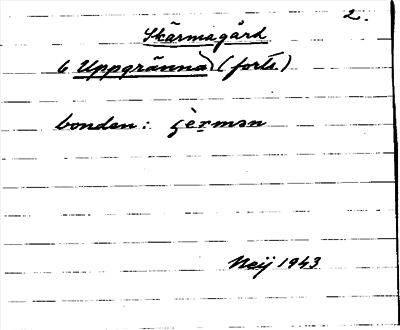 2.
Skärmagård
6 Uppgränna) (forts)
bonden: ʒèrmən
Neij 1943